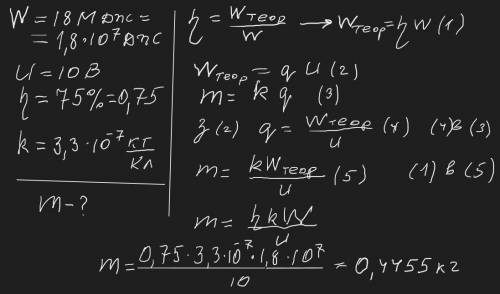 W = 18 М Дж =
= 1,8·10⁷ Дж
U = 10 В
η = 75% = 0,75
k = 3,3·10⁻⁷ кг/Кл
m - ?
η = Wтеор/W → Wтеор = ηW (1)
Wтеор = qU (2)
m = kq (3)
З (2) q = Wтеор/U (4) (4) в (3)
m = kWтеор/U (5) (1) в (5)
m = ηkW/U
m = 0,75·3,3·10⁻⁷·1,8·10⁷/10 = 0,4455 кг